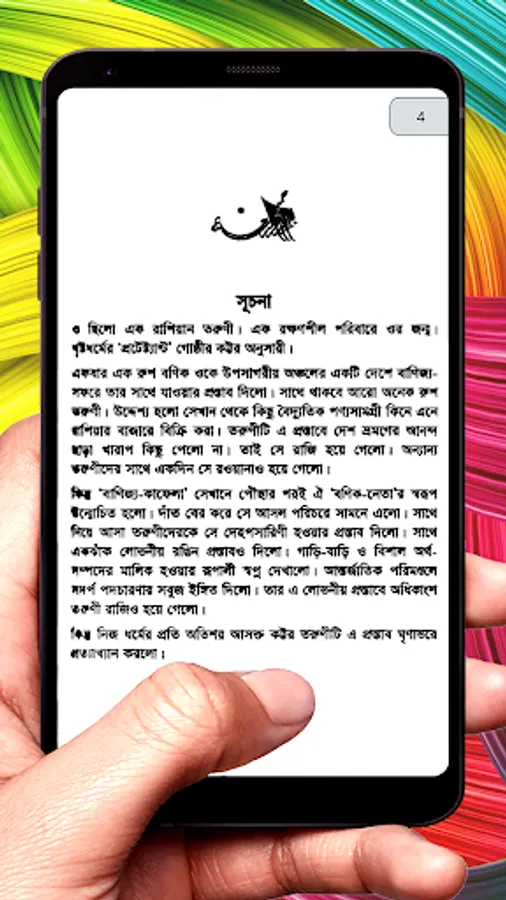 4
সূচনা
ও ছিলো এক রাশিয়ান তরুণী। এক রক্ষণশীল পরিবারে ওর জন্ম।
খৃষ্টধর্মের 'প্রটেষ্ট্যান্ট' গোষ্ঠীর কট্টর অনুসারী।
একবার এক রুশ বণিক ওকে উপসাগরীয় অঞ্চলের একটি দেশে বাণিজ্য-
সফরে তার সাথে যাওয়ার প্রস্তাব দিলো। সাথে থাকবে আরো অনেক রুশ
তরুণী। উদ্দেশ্য হলো সেখান থেকে কিছু বৈদ্যুতিক পণ্যসামগ্রী কিনে এনে
রাশিয়ার বাজারে বিক্রি করা। তরুণীটি এ প্রস্তাবে দেশ ভ্রমণের আনন্দ
ছাড়া খারাপ কিছু পেলো না। তাই সে রাজি হয়ে গেলো। অন্যান্য
তরুণীদের সাথে একদিন সে রওয়ানাও হয়ে গেলো।
কিন্তু 'বাণিজ্য-কাফেলা' সেখানে পৌছার পরই ঐ 'বণিক-নেতা'র স্বরূপ
উন্মোচিত হলো। দাঁত বের করে সে আসল পরিচয়ে সামনে এলো। সাথে
নিয়ে আসা তরুণীদেরকে সে দেহপসারিণী হওয়ার প্রস্তাব দিলো। সাথে
একঝাঁক লোভনীয় রঙিন প্রস্তাবও দিলো। গাড়ি-বাড়ি ও বিশাল অর্থ-
সম্পদের মালিক হওয়ার রূপালী স্বপ্ন দেখালো। আন্তর্জাতিক পরিমণ্ডলে
সদর্প পদচারণার সবুজ ইঙ্গিত দিলো। তার এ লোভনীয় প্রস্তাবে অধিকাংশ
তরুণী রাজিও হয়ে গেলো।
কিন্তু নিজ ধর্মের প্রতি অতিশয় আসক্ত কট্টর তরুণীটি এ প্রস্তাব ঘৃণাভরে
প্রত্যাখ্যান করলো।